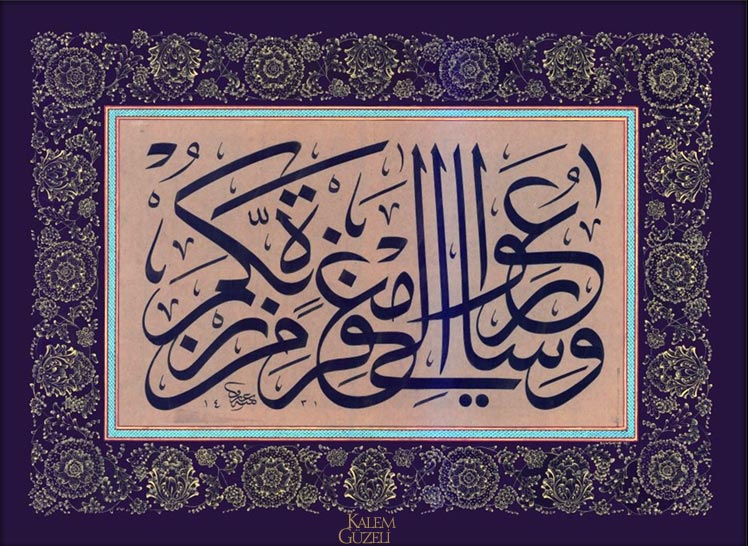 وَسَارِعُوا إِلَى مَغْفِرَةٍ مِنْ رَبِّكُمْ
١٤٣١
KALEM
GÜZELİ